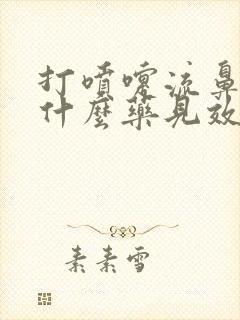 打噴嚏流鼻
什麼藥見效
素素雪